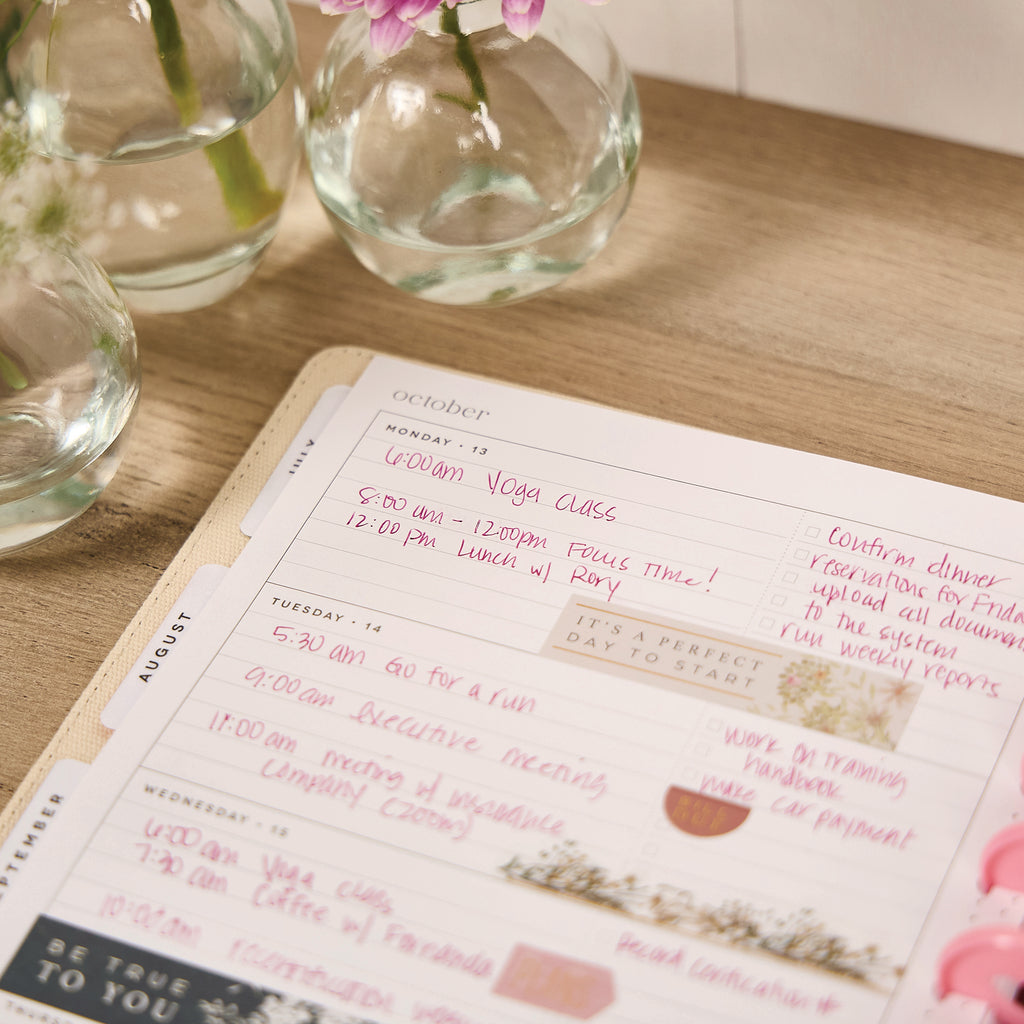 october
MONDAY · 13
6:00am Yoga class
8:00 am - 12:00pm Focus Time!
12:00 pm Lunch w/ Rory
confirm dinner
reservations for Frida
upload all documen
to the system
run weekly reports
IT'S A PERFECT
DAY TO START
TUESDAY · 14
5:30 am Go for a run
9:00am executive meeting
11:00 am meeting w/ insurance
company (zoom)
work on training
handbook
make car payment
WEDNESDAY · 15
6:00am Yoga class
7:30 am Coffee w/
10:00am
Record
BE TRUE
TO YOU
JULY
AUGUST
EPTEMBER